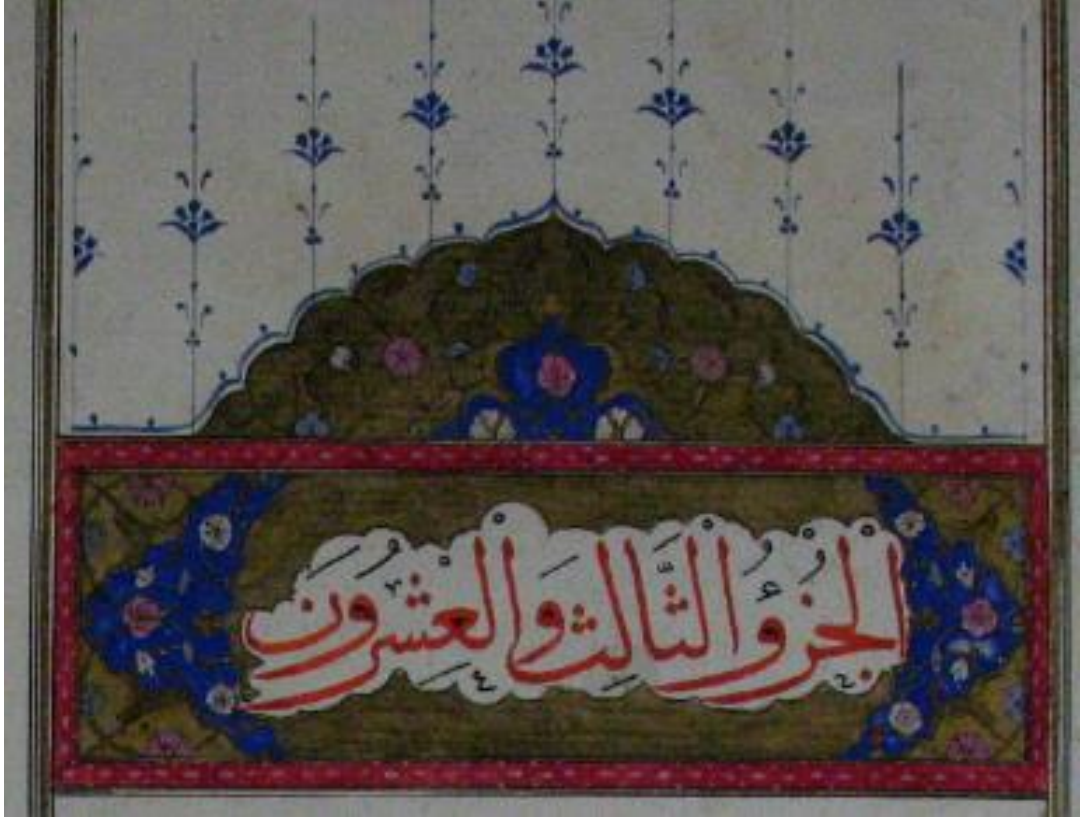 الْجُزْؤُ الثَّالِث وَالْعِشْرُونَ